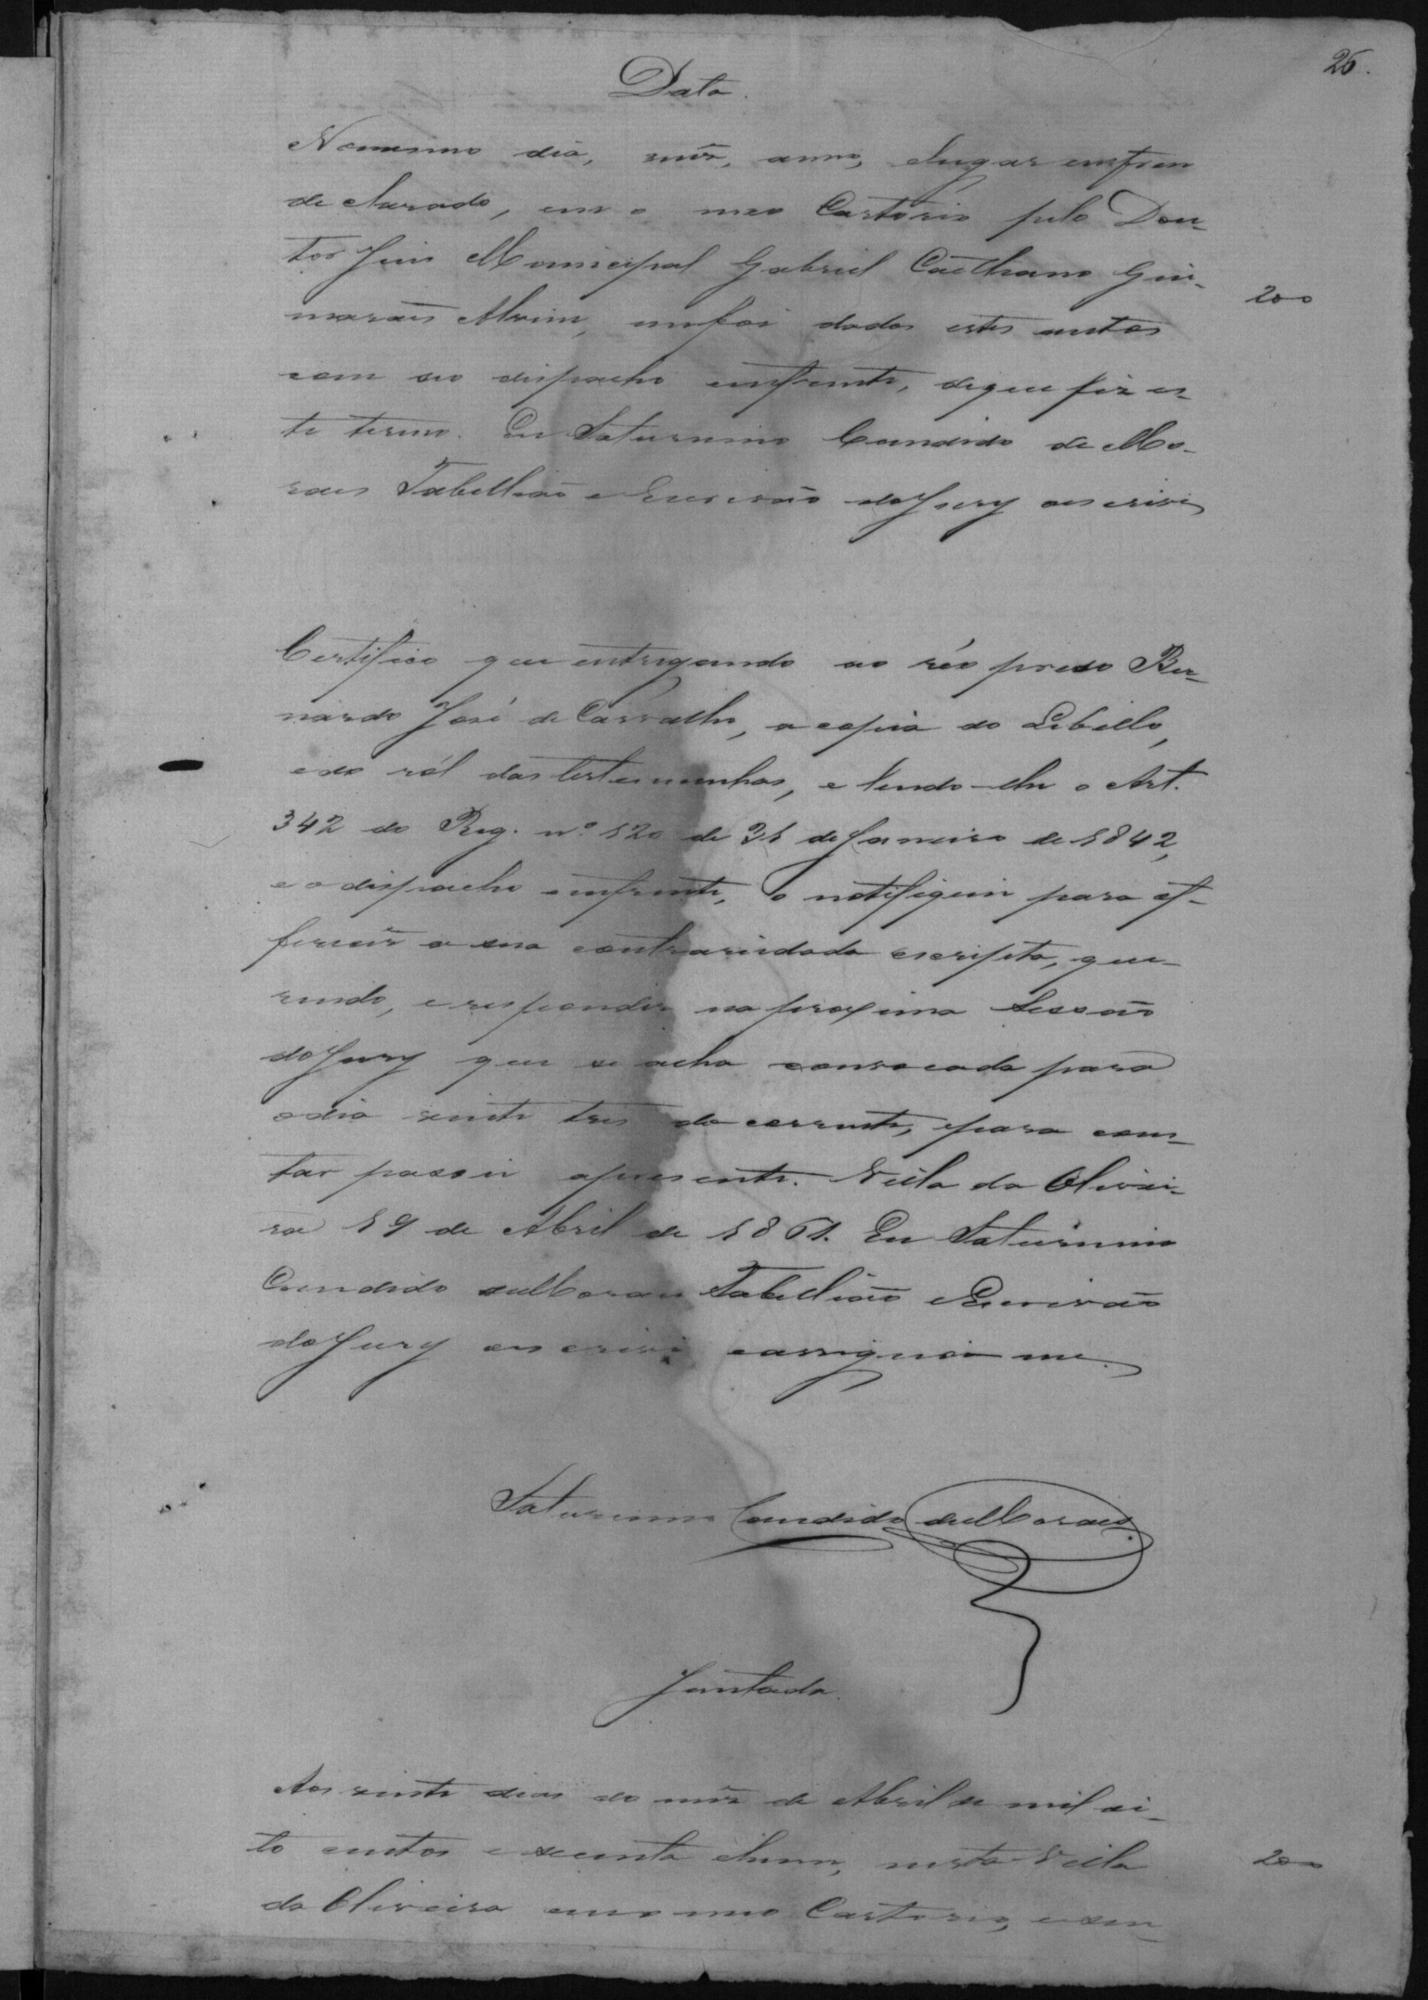 26.
Data.
No mesmo dia, mês, anno, elugar emfren
declarado, em o meo Cartorio pelo Dou-
tor Juis Municipal Gabriel Caethano Gui-
200
marães Alvim, mefoi dados estes autos
com seo dispacho emfrente, deque fiz es-
te termo. Eu Saturnino Candido de Mo-
raes Tabellião e Escrivão doJury oescrivi
Certifico que entregando ao réo preso Ber-
nardo José de Carvalho, a copia do Libello,
edo ról das testemunhas, e lendo-lhe o Art.
342 do Reg. nº 120 de 31 de Janeiro de 1842,
e o dispacho emfrente, o notifiquei para of-
ferecer a sua contrariedade escripta, que-
rendo, e responder na proxima Sessão
doJury que se acha convocada para
odia vinte tres do corrente, epara cons-
tar passei apresente. Villa da Olivei-
ra 19 de Abril de 1861. Eu Saturnino
Candido deMoraes Tabellião eEscrivão
doJury oescrivi eassignei me.
Saturnino Candido deMoraes.
Juntada.
Aos vinte dias do mês de Abril de mil oi-
to centos e secenta ehum, nesta Villa
200
da Oliveira em o meo Cartorio,